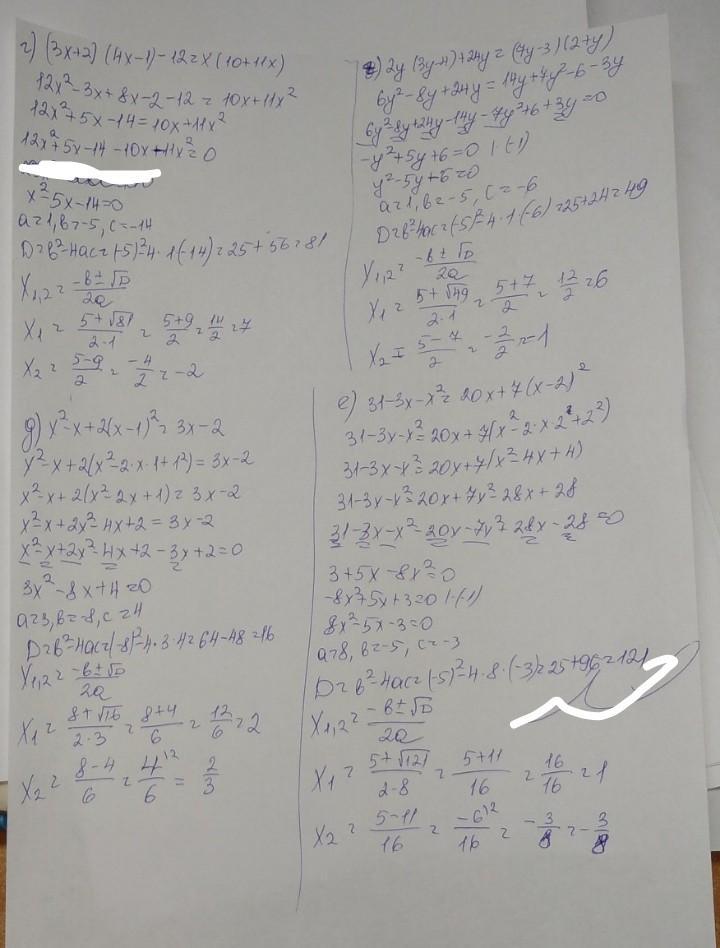 г) (3x+2)(4x-1)-12=x(10+11x)
12x²-3x+8x-2-12=10x+11x²
12x²+5x-14=10x+11x²
12x²+5x-14-10x-11x²=0
x²-5x-14=0
a=1, b=-5, c=-14
D=b²-4ac=(-5)²-4·1(-14)=25+56=81
X₁,₂=(-b±√D)/2a
X₁=(5+√81)/(2·1)=(5+9)/2=14/2=7
X₂=(5-9)/2=-4/2=-2
д) x²-x+2(x-1)²=3x-2
x²-x+2(x²-2·x·1+1²)=3x-2
x²-x+2(x²-2x+1)=3x-2
x²-x+2x²-4x+2=3x-2
x²-x+2x²-4x+2-3x+2=0
3x²-8x+4=0
a=3, b=-8, c=4
D=b²-4ac=(-8)²-4·3·4=64-48=16
X₁,₂=(-b±√D)/2a
X₁=(8+√16)/(2·3)=(8+4)/6=12/6=2
X₂=(8-4)/6=4/6=2/3
) 2y(3y-4)+24y=(7y-3)(2+y)
6y²-8y+24y=14y+7y²-6-3y
6y²-8y+24y-14y-7y²+6+3y=0
-y²+5y+6=0 |·(-1)
y²-5y-6=0
a=1, b=-5, c=-6
D=b²-4ac=(-5)²-4·1·(-6)=25+24=49
X₁,₂=(-b±√D)/2a
X₁=(5+√49)/(2·1)=(5+7)/2=12/2=6
X₂=(5-7)/2=-2/2=-1
е) 31-3x-x²=20x+7(x-2)²
31-3x-x²=20x+7(x²-2·x·2+2²)
31-3x-x²=20x+7(x²-4x+4)
31-3x-x²=20x+7x²-28x+28
31-3x-x²-20x-7x²+28x-28=0
3+5x-8x²=0
-8x²+5x+3=0 |·(-1)
8x²-5x-3=0
a=8, b=-5, c=-3
D=b²-4ac=(-5)²-4·8·(-3)=25+96=121
X₁,₂=(-b±√D)/2a
X₁=(5+√121)/(2·8)=(5+11)/16=16/16=1
X₂=(5-11)/16=-6/16=-3/8=-3/8